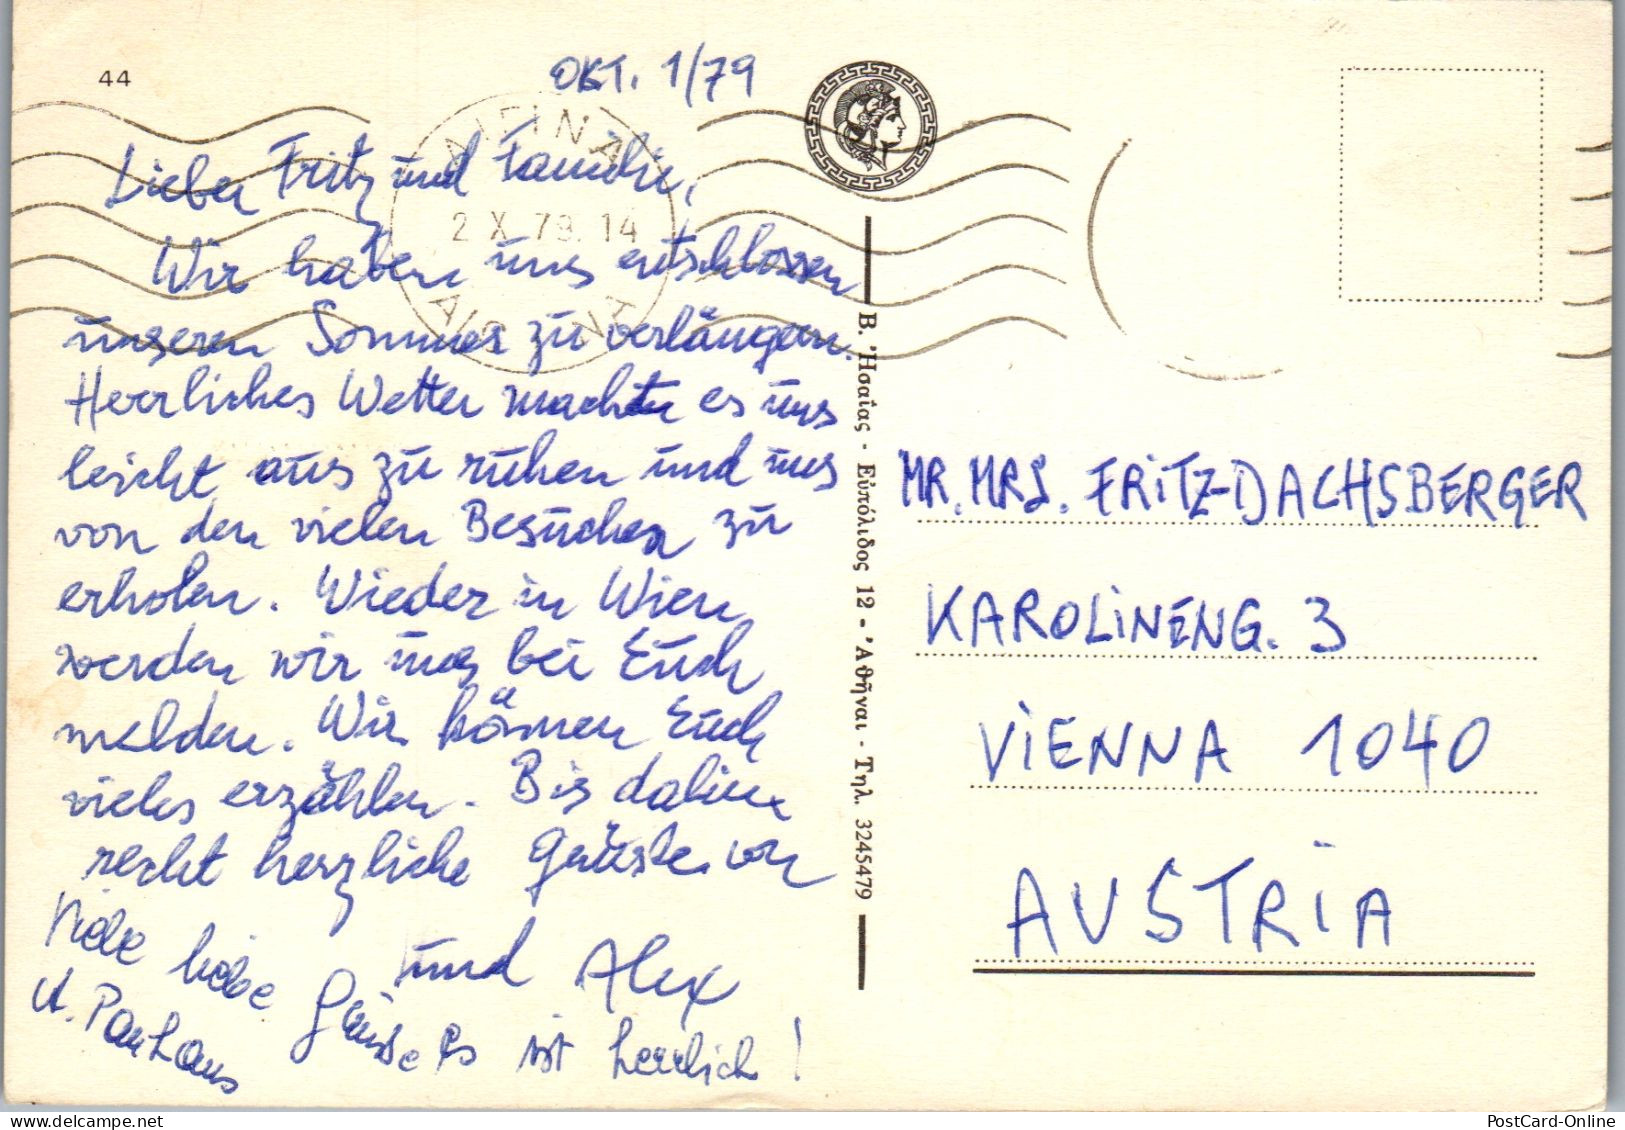 44
OKT. 1/79
ΑΙΓΙΝΑ
2 X 79. 14
Lieber Fritz und Familie,
Wir haben uns entschlossen
unseren Sommer zu verlängern.
Herrliches Wetter machte es uns
leicht aus zu ruhen und uns
von den vielen Besuchen zu
erholen. Wieder in Wien
werden wir uns bei Euch
melden. Wir können Euch
vieles erzählen. Bis dahin
recht herzliche Grüsse von
und Alex
liebe Grüsse Es ist herrlich!
Β. Ἡσαΐας - Εὐπόλιδος 12 - Ἀθῆναι - Τηλ. 3245479
MR. MRS. FRITZ-DACHSBERGER
KAROLINENG. 3
VIENNA 1040
AUSTRIA
PostCard-Online
delcampe.net